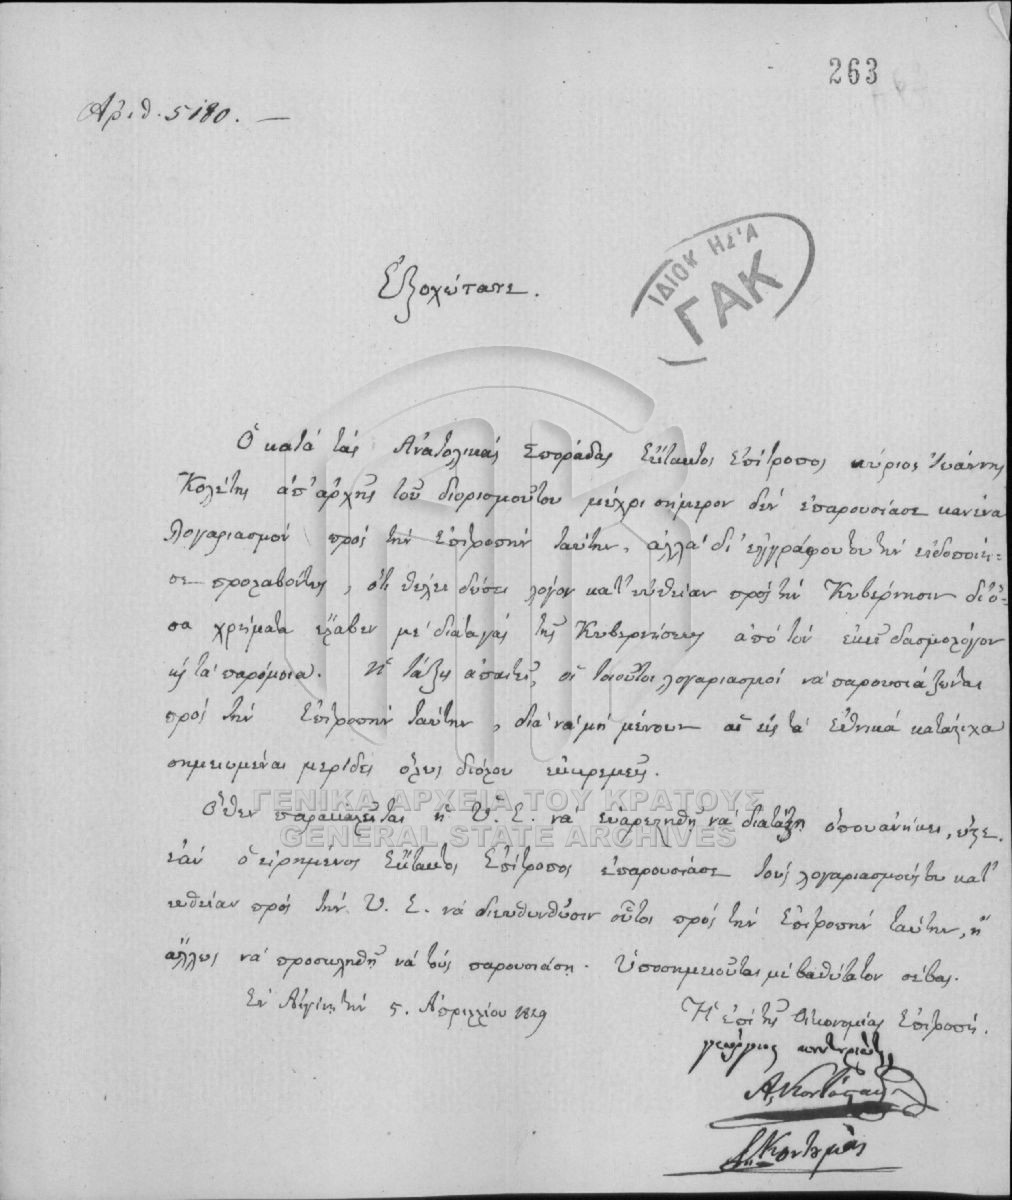 263
Ἀριθ. 5180. —
ΙΔΙΟΚΤΗΣΙΑ
ΓΑΚ
Ἐξοχώτατε.
Ὁ κατὰ τὰς Ἀνατολικὰς Σποράδας Ἔκτακτος Ἐπίτροπος κύριος Ἰωάννης
Κολέτης ἀπ' ἀρχῆς τοῦ διορισμοῦ του μέχρι σήμερον δὲν ἐπαρουσίασε κανένα
λογαριασμὸν πρὸς τὴν Ἐπιτροπὴν ταύτην, ἀλλὰ δι' ἐγγράφου του τὴν εἰδοποίη-
σε προλαβόντως, ὅτι θέλει δώσει λόγον κατ' εὐθεῖαν πρὸς τὴν Κυβέρνησιν δι' ὅ-
σα χρήματα ἔλαβεν μὲ διαταγὰς τῆς Κυβερνήσεως ἀπὸ τὸν ἐκεῖ δασμολόγον
κ τὰ παρόμοια. Ἡ τάξις ἀπαιτεῖ, οἱ τοιοῦτοι λογαριασμοὶ νὰ παρουσιάζωνται
πρὸς τὴν Ἐπιτροπὴν ταύτην, διὰ νὰ μὴ μένουν αἱ εἰς τὰ ἐθνικὰ κατάστιχα
σημειωμέναι μερίδες ὅλως διόλου ἐκκρεμεῖς.
ΓΕΝΙΚΑ ΑΡΧΕΙΑ ΤΟΥ ΚΡΑΤΟΥΣ
GENERAL STATE ARCHIVES
Ὅθεν παρακαλεῖται ἡ Υ. Ε. νὰ εὐαρεστηθῇ νὰ διατάξῃ ὅπου ἀνήκει, ὥστε
ἐὰν ὁ εἰρημένος Ἔκτακτος Ἐπίτροπος ἐπαρουσίασε τοὺς λογαριασμούς του κατ'
εὐθεῖαν πρὸς τὴν Υ. Ε. νὰ διευθυνθῶσιν οὗτοι πρὸς τὴν Ἐπιτροπὴν ταύτην, ἢ
ἄλλως νὰ προσκληθῇ νὰ τοὺς παρουσιάσῃ. Ὑποσημειοῦται μὲ βαθύτατον σέβας.
Ἐν Αἰγίνῃ τὴν 5. Ἀπριλλίου 1829
Ἡ ἐπὶ τῆς Οἰκονομίας Ἐπιτροπή.
γεώργιος κουντουριώτης
Α. Κοντόσταυλος